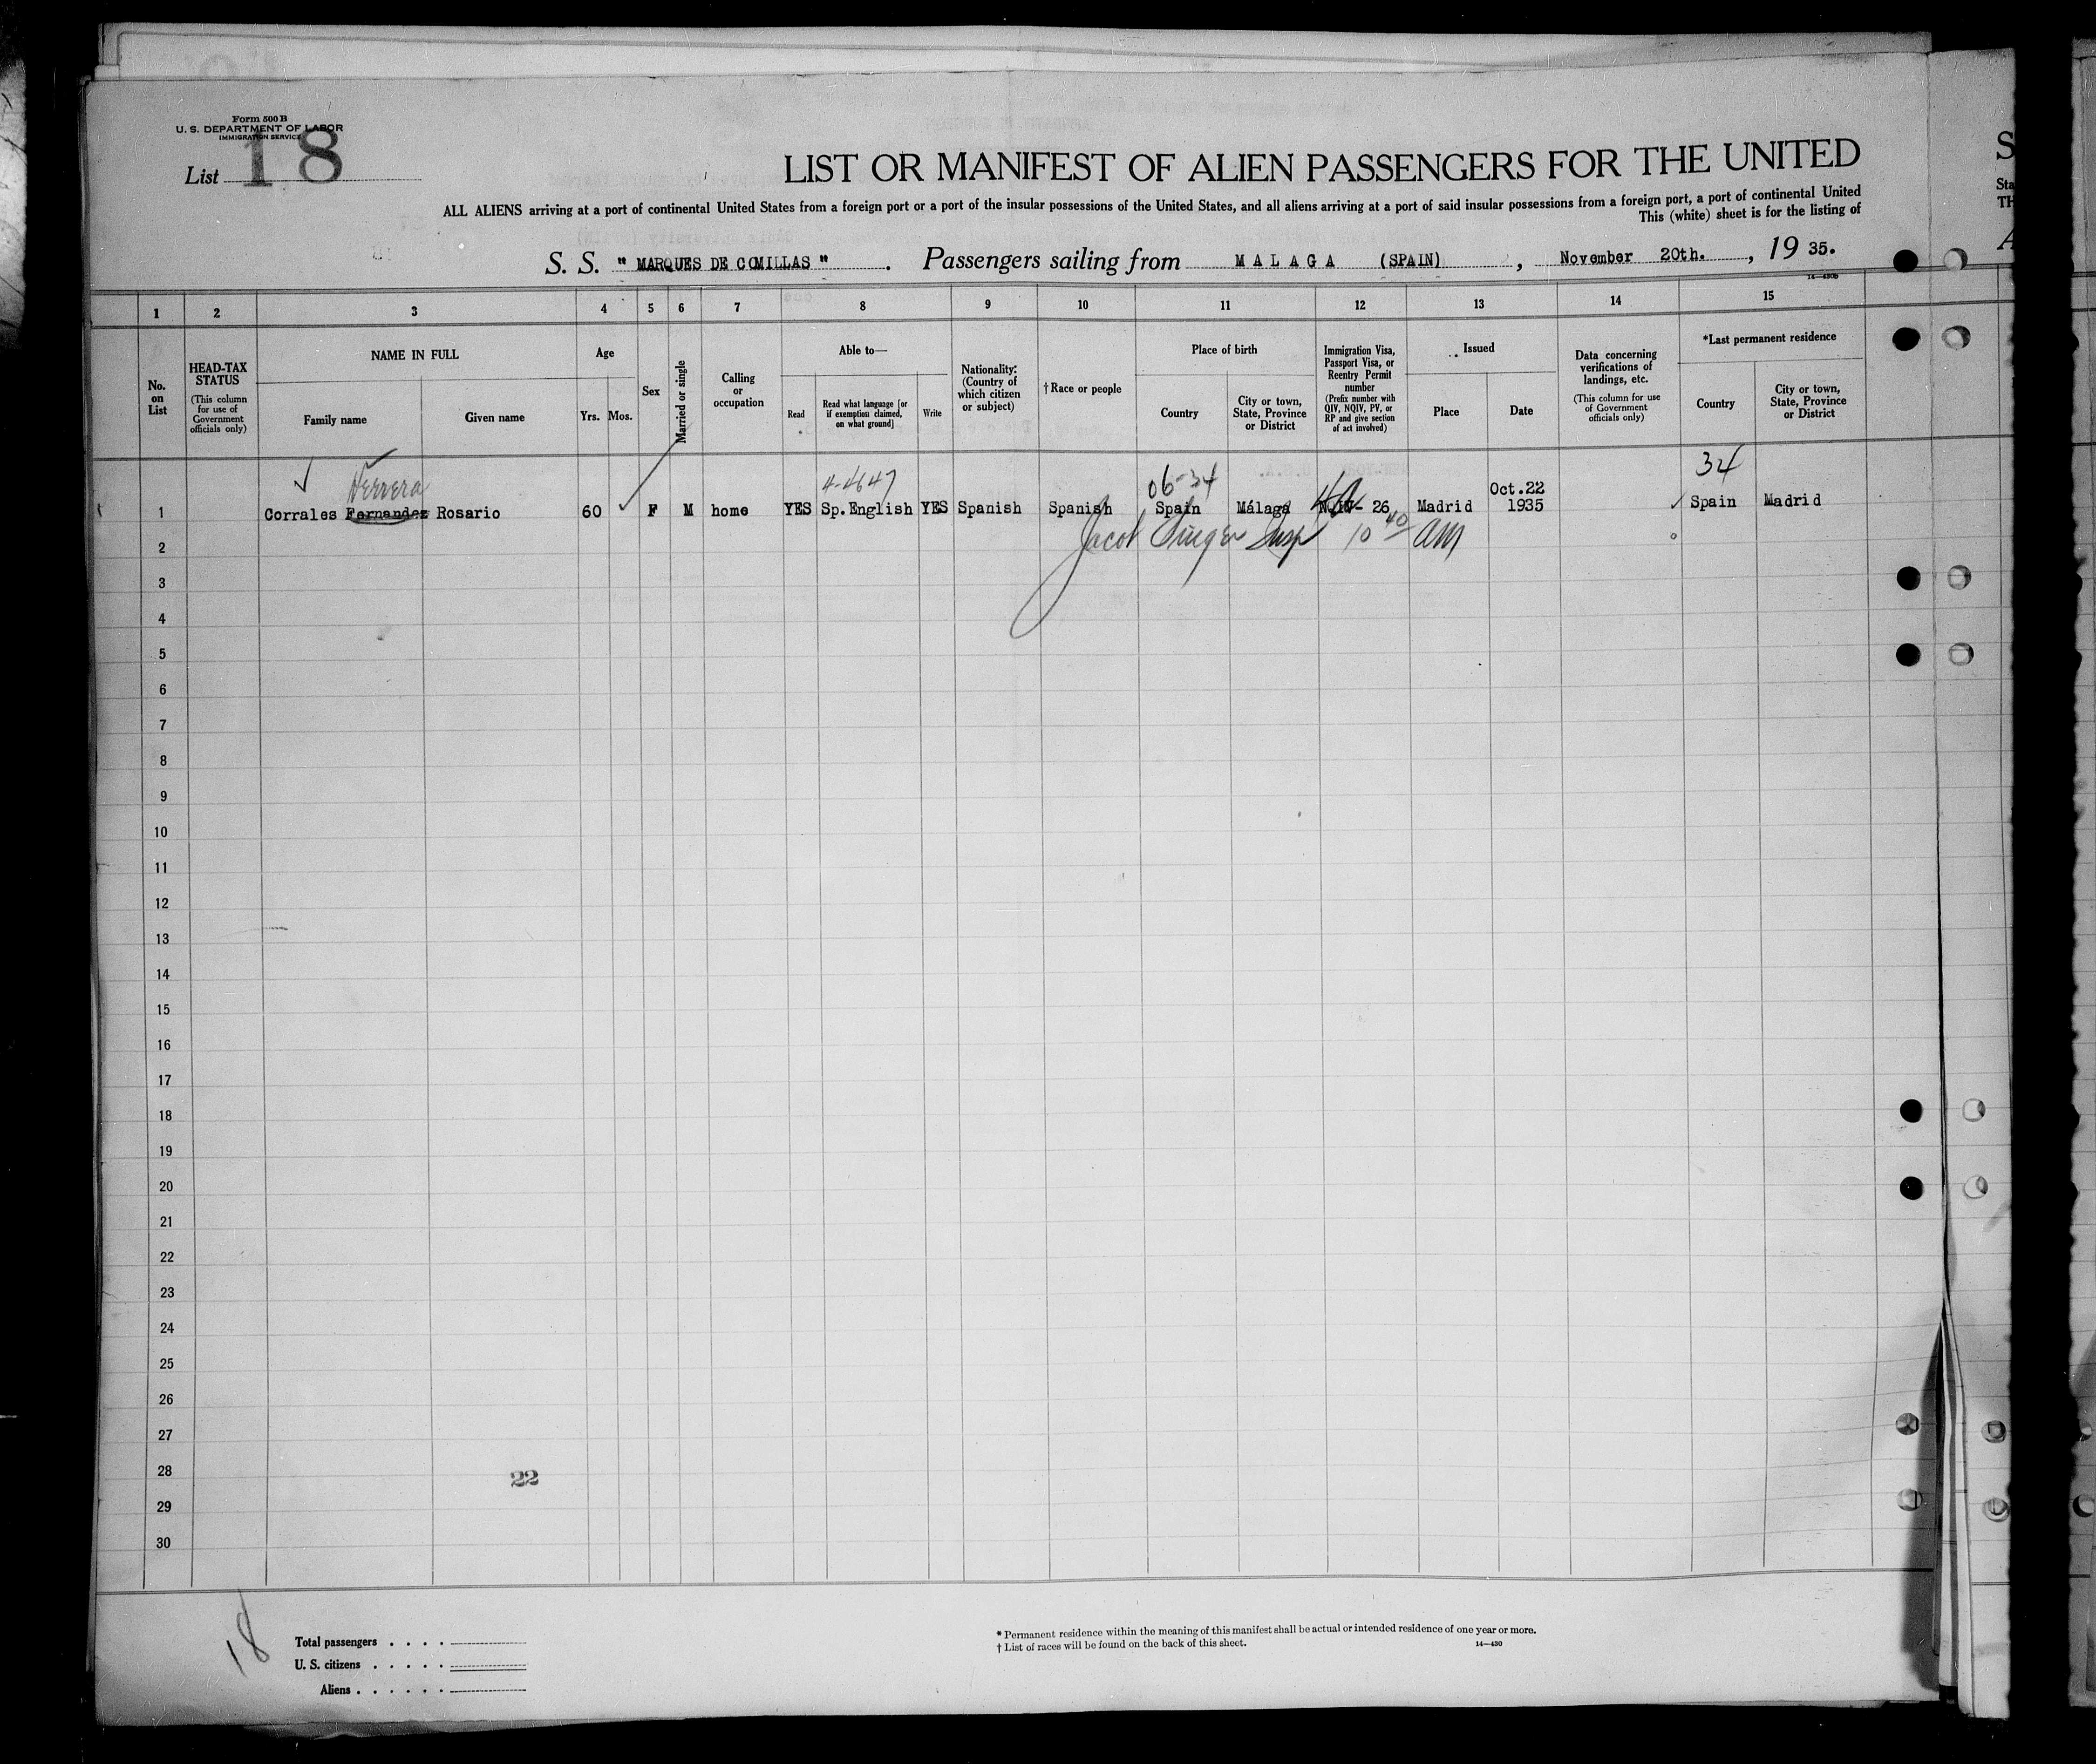 Form 500 B
U. S. DEPARTMENT OF LABOR
IMMIGRATION SERVICE
List 18
LIST OR MANIFEST OF ALIEN PASSENGERS FOR THE UNITED
ALL ALIENS arriving at a port of continental United States from a foreign port or a port of the insular possessions of the United States, and all aliens arriving at a port of said insular possessions from a foreign port, a port of continental United
This (white) sheet is for the listing of
S. S. " MARQUES DE COMILLAS " . Passengers sailing from MALAGA (SPAIN) , November 20th. , 19 35.
1 2 3 4 5 6 7 8 9 10 11 12 13 14 15
No. on List
HEAD-TAX STATUS (This column for use of Government officials only)
NAME IN FULL
Family name Given name
Age
Yrs. Mos.
Sex
Married or single
Calling or occupation
Able to—
Read
Read what language [or if exemption claimed, on what ground]
Write
Nationality: (Country of which citizen or subject)
† Race or people
Place of birth
Country
City or town, State, Province or District
Immigration Visa, Passport Visa, or Reentry Permit number (Prefix number with QIV, NQIV, PV, or RP and give section of act involved)
Issued
Place Date
Data concerning verifications of landings, etc. (This column for use of Government officials only)
*Last permanent residence
Country
City or town, State, Province or District
Herrera 4-4647 06-34 34
1 Corrales Fernandez Rosario 60 F M home YES Sp.English YES Spanish Spanish Spain Málaga NQIV- 26 Madrid Oct.22 1935 Spain Madrid
2 Jacob Singer Insp 10 40 am
3
4
5
6
7
8
9
10
11
12
13
14
15
16
17
18
19
20
21
22
23
24
25
26
27
28 22
29
30
18
Total passengers . . . .
U. S. citizens . . . . .
Aliens . . . . . .
* Permanent residence within the meaning of this manifest shall be actual or intended residence of one year or more.
† List of races will be found on the back of this sheet. 14—430